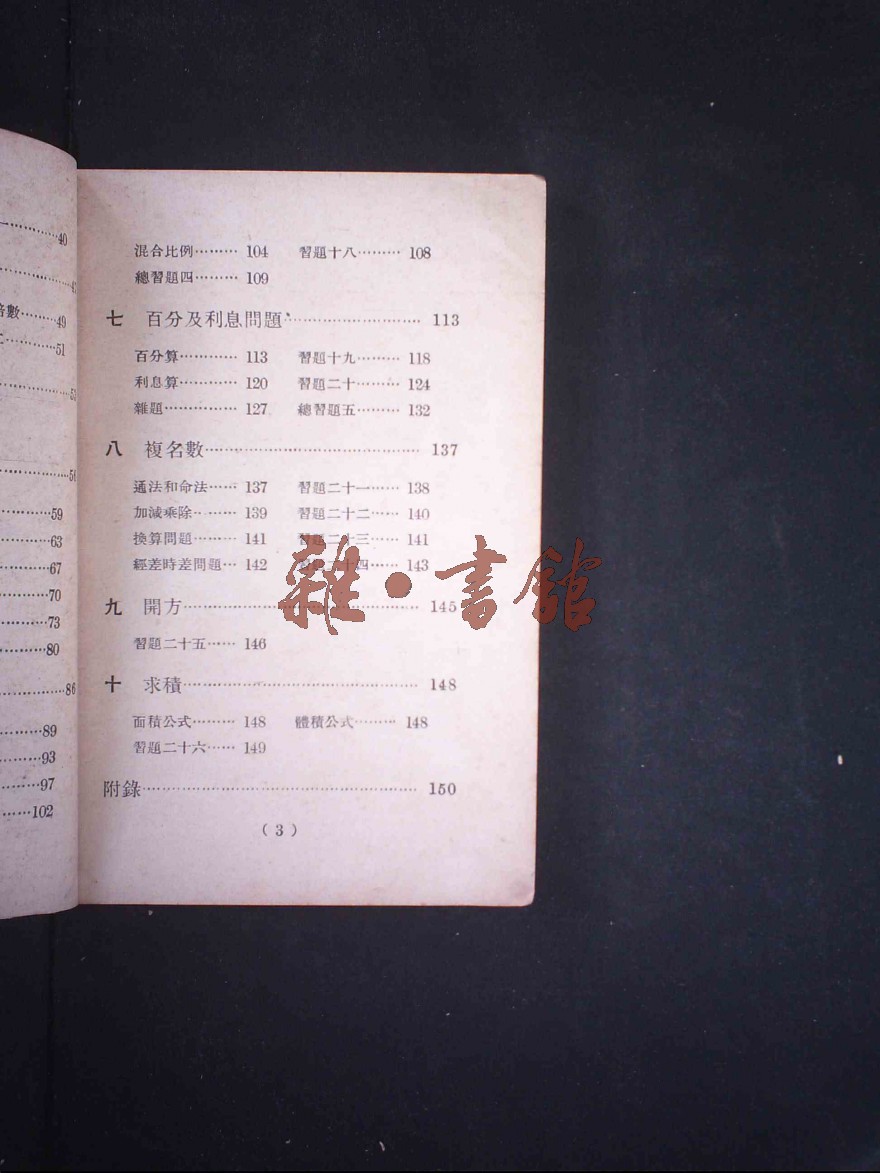 40
倍數……49
51
59
63
67
70
73
80
86
89
93
97
102
混合比例……… 104 習題十八……… 108
總習題四……… 109
七 百分及利息問題…………………… 113
百分算………… 113 習題十九……… 118
利息算………… 120 習題二十……… 124
雜題…………… 127 總習題五……… 132
八 複名數………………………………… 137
通法和命法…… 137 習題二十一…… 138
加減乘除……… 139 習題二十二…… 140
換算問題……… 141 習題二十三…… 141
經差時差問題… 142 習題二十四…… 143
九 開方…………………………………… 145
習題二十五…… 146
十 求積…………………………………… 148
面積公式……… 148 體積公式……… 148
習題二十六…… 149
附錄………………………………………… 150
( 3 )
雜·書館